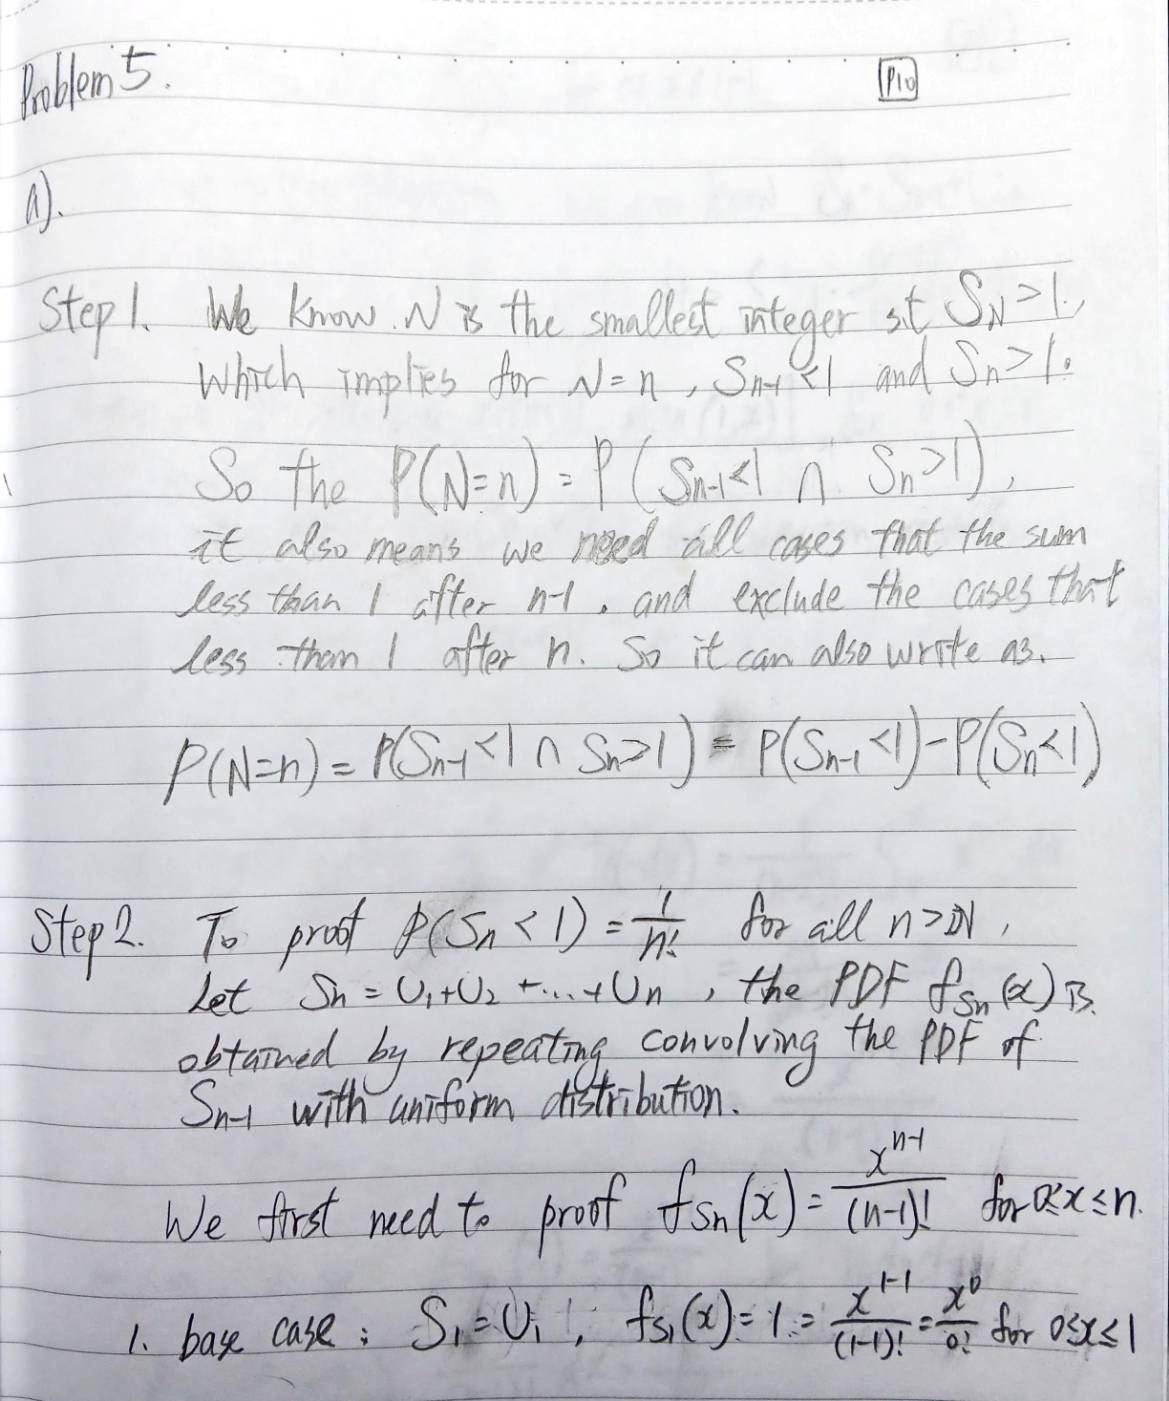 Problem 5.
P10
a).
Step 1. We know N is the smallest integer s.t S_N > 1,
which implies for N=n, S_{n-1} < 1 and S_n > 1.
So the P(N=n) = P(S_{n-1}<1 ∩ S_n>1),
it also means we need all cases that the sum
less than 1 after n-1, and exclude the cases that
less than 1 after n. So it can also write as.
P(N=n) = P(S_{n-1}<1 ∩ S_n>1) = P(S_{n-1}<1) - P(S_n<1)
Step 2. To proof P(S_n < 1) = 1/n! for all n > N,
Let S_n = U_1+U_2 +...+U_n, the PDF f_{S_n}(x) is
obtained by repeating convolving the PDF of
S_{n-1} with uniform distribution.
We first need to proof f_{S_n}(x) = x^{n-1}/(n-1)! for 0≤x≤n.
1. base case: S_1=U_1, f_{S_1}(x) = 1 = x^{1-1}/(1-1)! = x^0/0! for 0≤x≤1